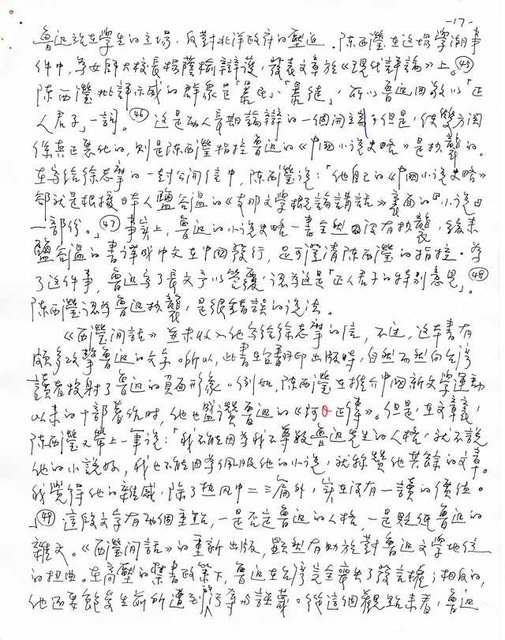 -17-
魯迅站在學生的立場,反對北洋政府的壓迫。陳西瀅在這場學潮事
件中,為女師大校長楊蔭榆辯護,發表文章於《現代評論》上。㊺
陳西瀅批評示威的群眾是「暴民」、「暴徒」,所以魯迅回敬以「正
人君子」一詞。㊻這是兩人長期論辯的一個開端。但是,使雙方關
係真正惡化的,則是陳西瀅指控魯迅的《中國小說史略》是抄襲的。
在寫給徐志摩的一封公開信中,陳西瀅說:「他自己的《中國小說史略》
卻就是根據日本人鹽谷溫的《支那文學概論講話》裏面的『小說』
一部份。㊼事實上,魯迅的小說史略一書全然沒有抄襲,後來
鹽谷溫的書譯成中文在中國發行,足可澄清陳西瀅的指控。為
了這件事,魯迅寫了長文予以答覆,認為這是「正人君子的特別意見」。㊽
陳西瀅認為魯迅抄襲,是很錯誤的說法。
《西瀅閒話》並未收入他寫給徐志摩的信,不過,這本書有
頗多攻擊魯迅的文字。所以,此書在台灣印出版時,自然而然向台灣
讀者投射了魯迅的負面形象。例如,陳西瀅在推介中國新文學運動
以來的十部著作時,他也盛讚魯迅的《阿Q正傳》。但是,在文章裏,
陳西瀅又帶上一筆說:「我不能因為我不尊敬魯迅先生的人格,就不說
他的小說好,我也不能因為佩服他的小說,就稱讚他其餘的文章。
我覺得他的雜感,除了熱風中二三篇外,實在沒有一讀的價值。」
㊾這段文字有兩個重點,一是否定魯迅的人格,一是貶低魯迅的
雜文。《西瀅閒話》的重新出版,顯然有助於對魯迅文學地位
的扭曲。在高壓的禁書政策下,魯迅在台灣完全喪失了發言權;相反的,
他還要飽受生前所遭到的污辱與誣蔑。從這個觀點來看,魯迅